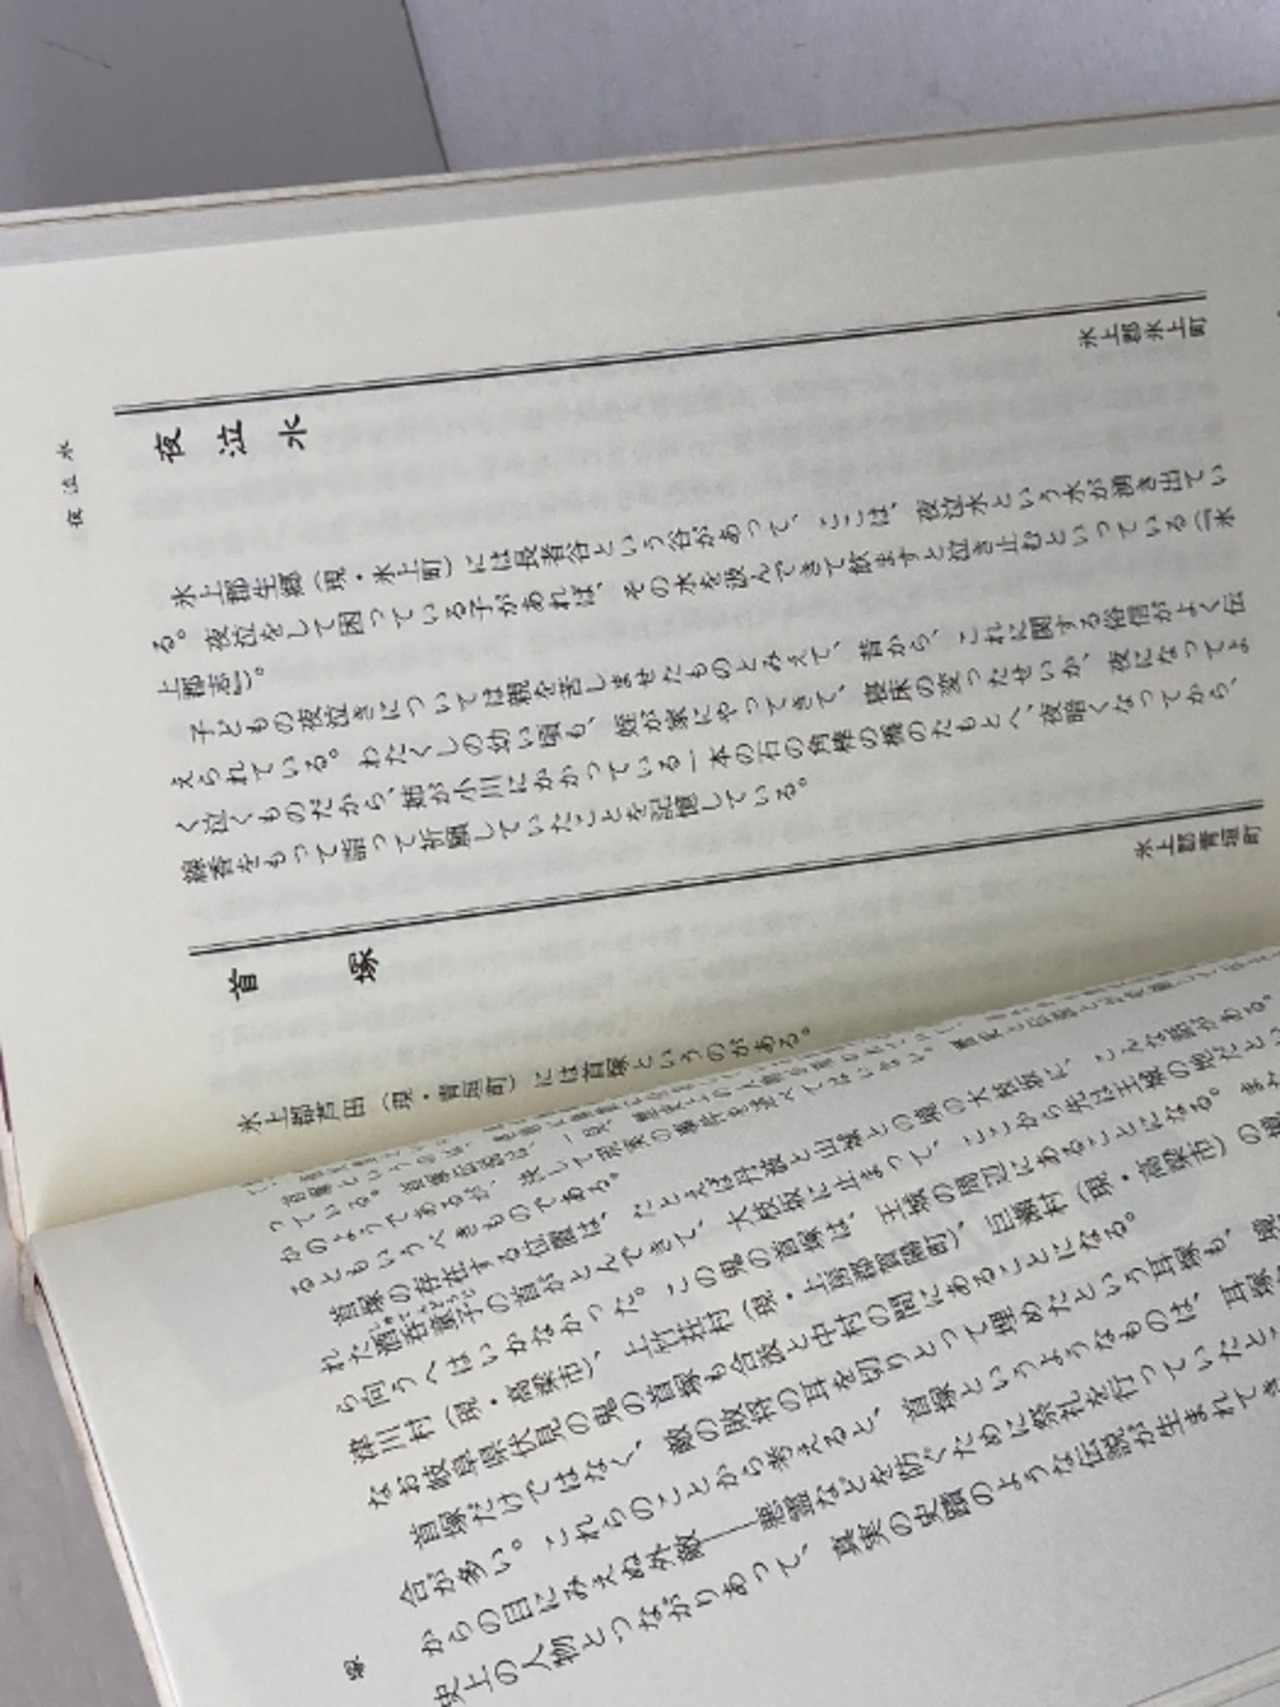 夜泣水
夜泣水
氷上郡氷上町
氷上郡生郷（現・氷上町）には長者谷という谷があって、ここは、夜泣水という水が湧き出てい
る。夜泣をして困っている子があれば、その水を汲んできて飲ますと泣き止むといっている（『氷
上郡志』）。
子どもの夜泣きについては親を苦しませたものとみえて、昔から、これに関する俗信がよく伝
えられている。わたくしの幼い頃も、姪が家にやってきて、寝床の変ったせいか、夜になってよ
く泣くものだから、姑が小川にかかっている一本の石の角棒の橋のたもとへ、夜暗くなってから、
線香をもって詣って祈願していたことを記憶している。
首塚
氷上郡青垣町
氷上郡芦田（現・青垣町）には首塚というのがある。
首塚というのは、
っている。首塚伝説は、一見、
かのようであるが、決して現実の事件を述べてはいない。
るともいうべきものである。
首塚の存在する位置は、たとえば丹波と山城との境の大枝坂に、こんな話がある。
れた酒呑童子の首がとんできて、大枝坂に止まって、ここから先は王城の地だとい
ら向うへはいかなかった。この鬼の首塚は、王城の周辺にあることになる。また
津川村（現・高梁市）、上竹荘村（現・上房郡賀陽町）、巨瀬村（現・高梁市）の境
なお岐阜県伏見の鬼の首塚も合致と中村の間にあることになる。
首塚だけではなく、敵の敗将の耳を切りとって埋めたという耳塚も、境
合が多い。これらのことから考えると、首塚というようなものは、耳塚
からの目にみえぬ外敵――悪霊などを防ぐために祭礼を行っていたと
史上の人物とつながりあって、真実の史蹟のような伝説が生まれてき
塚